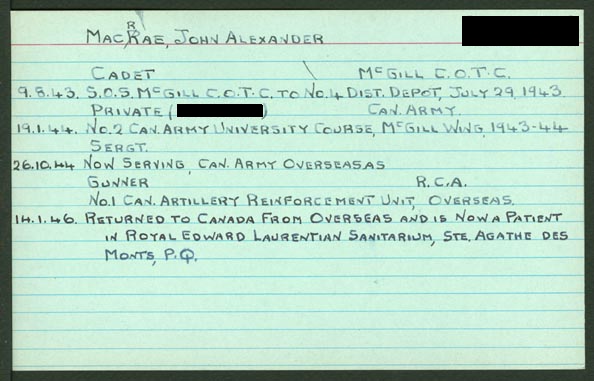 MacRae, John Alexander
Cadet McGill C.O.T.C.
9.8.43. S.O.S. McGill C.O.T.C. to No.4 Dist. Depot, July 29, 1943
Private ( ) Can. Army.
19.1.44. No.2 Can. Army University Course, McGill Wing, 1943-44
Sergt.
26.10.44 Now Serving, Can. Army Overseasas
Gunner R.C.A.
No.1 Can. Artillery Reinforcement Unit, Overseas.
14.1.46. Returned to Canada From Overseas and is Now a Patient
in Royal Edward Laurentian Sanitarium, Ste. Agathe des
Monts, P.Q.